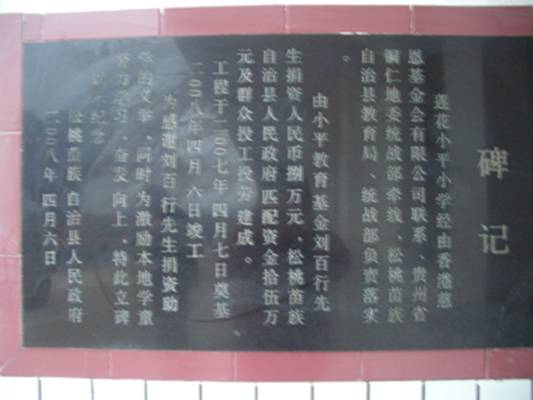 碑记
莲花小平小学经由香港慈
恩基金会有限公司联系、贵州省
铜仁地委统战部牵线、松桃苗族
自治县教育局、统战部负责落实
。
由小平教育基金刘百行先
生捐资人民币捌万元、松桃苗族
自治县人民政府匹配资金拾伍万
元及群众投工投劳建成。
工程于二00七年四月七日奠基
二00八年四月六日竣工
为感谢刘百行先生捐资助
学的义举，同时为激励本地学童
努力学习、奋发向上、特此立碑
纪念
松桃苗族自治县人民政府
二00八年四月六日